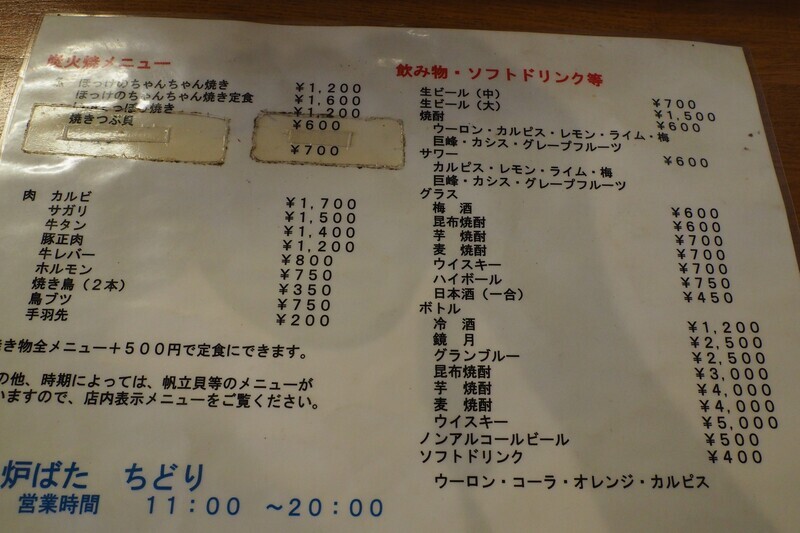 炭火焼メニュー
ほっけのちゃんちゃん焼き ¥1,200
ほっけのちゃんちゃん焼き定食 ¥1,600
焼き ¥1,200
焼きつぶ貝 ¥600
¥700
肉 カルビ ¥1,700
サガリ ¥1,500
牛タン ¥1,400
豚正肉 ¥1,200
牛レバー ¥800
ホルモン ¥750
焼き鳥(2本) ¥350
鳥ブツ ¥750
手羽先 ¥200
き物全メニュー+500円で定食にできます。
の他、時期によっては、帆立貝等のメニューが
いますので、店内表示メニューをご覧ください。
炉ばた ちどり
営業時間 11:00 ~20:00
飲み物・ソフトドリンク等
生ビール(中) ¥700
生ビール(大) ¥1,500
焼酎 ¥600
ウーロン・カルピス・レモン・ライム・梅
巨峰・カシス・グレープフルーツ
サワー ¥600
カルピス・レモン・ライム・梅
巨峰・カシス・グレープフルーツ
グラス
梅 酒 ¥600
昆布焼酎 ¥600
芋 焼酎 ¥700
麦 焼酎 ¥700
ウイスキー ¥700
ハイボール ¥750
日本酒(一合) ¥450
ボトル
冷 酒 ¥1,200
鏡 月 ¥2,500
グランブルー ¥2,500
昆布焼酎 ¥3,000
芋 焼酎 ¥4,000
麦 焼酎 ¥4,000
ウイスキー ¥5,000
ノンアルコールビール ¥500
ソフトドリンク ¥400
ウーロン・コーラ・オレンジ・カルピス